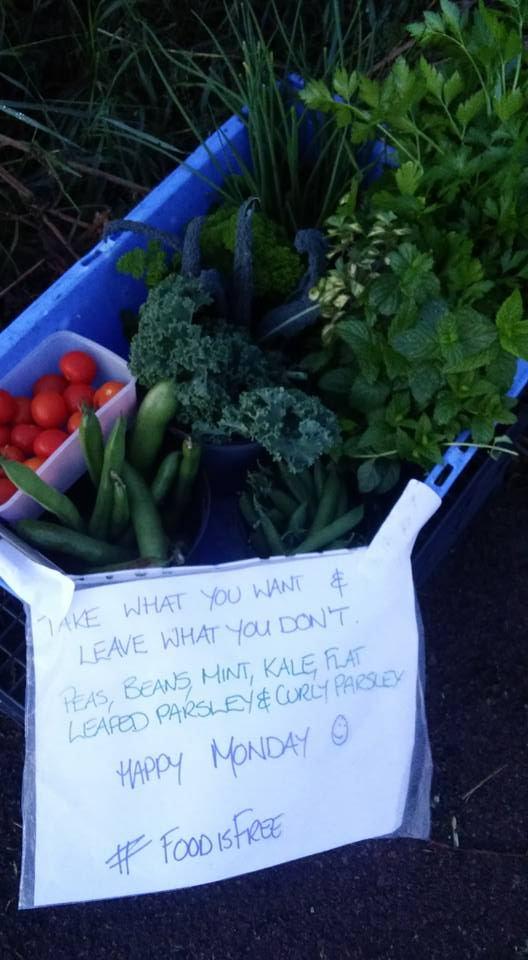 TAKE WHAT YOU WANT &
LEAVE WHAT YOU DON'T.
PEAS, BEANS, MINT, KALE, FLAT
LEAFED PARSLEY & CURLY PARSLEY
HAPPY MONDAY ☺
# FOODISFREE